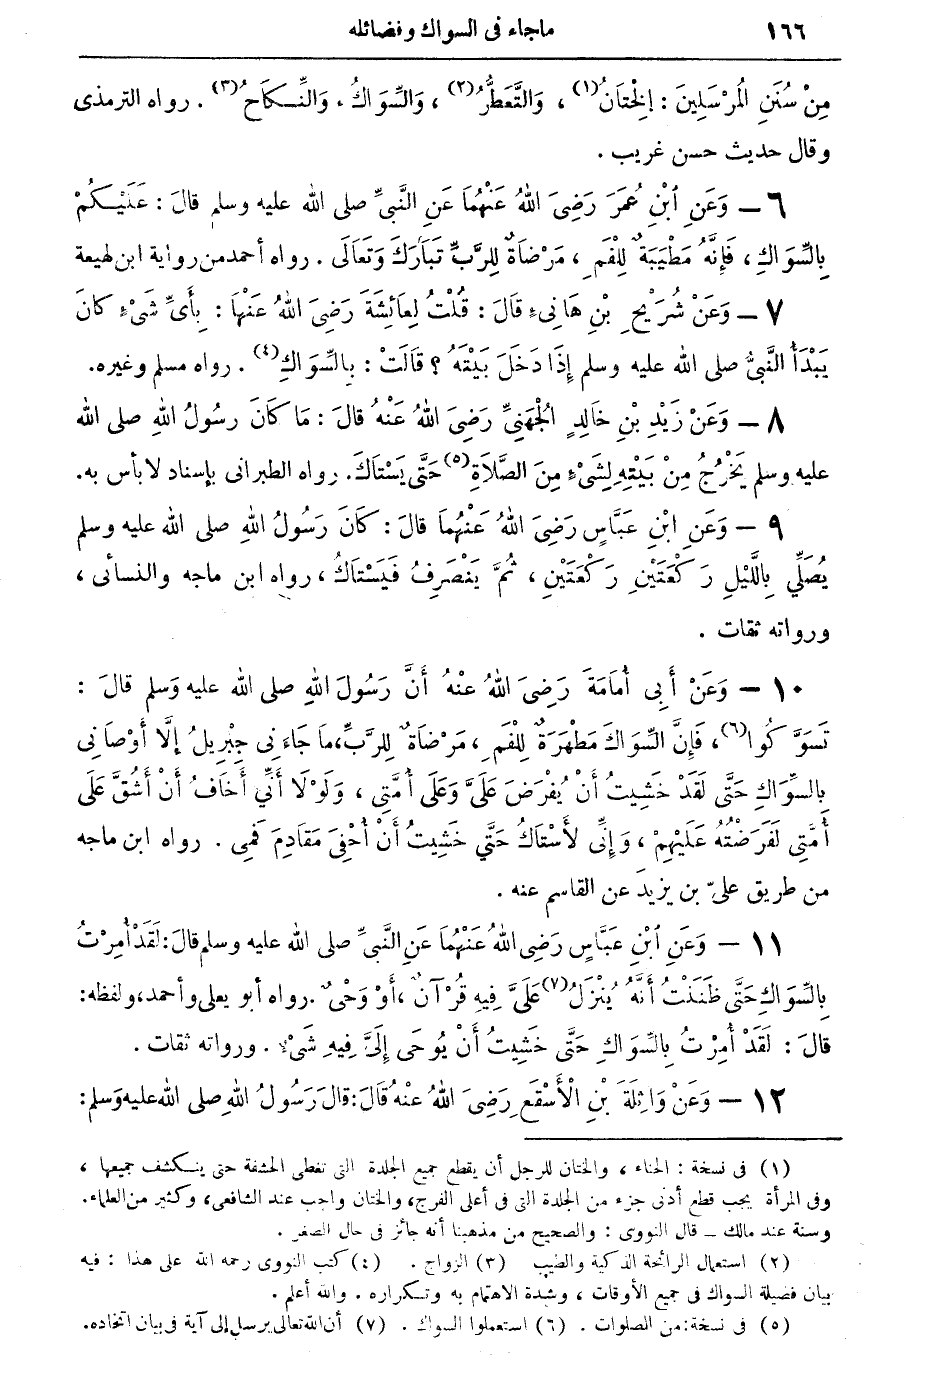 ١٦٦ ماجاء فى السواك وفضائله
مِنْ سُنَنِ الْمُرْسَلِينَ : الْخِتَانُ(١) ، وَالتَّعَطُّرُ(٢) ، وَالسِّوَاكُ ، وَالنِّكَاحُ(٣) . رواه الترمذى
وقال حديث حسن غريب .
٦ – وَعَنِ ابْنِ عُمَرَ رَضِىَ اللهُ عَنْهُمَا عَنِ النَّبِىِّ صلى الله عليه وسلم قالَ : عَلَيْكُمْ
بِالسِّوَاكِ ، فَإِنَّهُ مَطْيَبَةٌ لِلْفَمِ ، مَرْضَاةٌ لِلرَّبِّ تَبَارَكَ وَتَعَالَى . رواه أحمد من رواية ابن لهيعة
٧ – وَعَنْ شُرَيْحِ بْنِ هَانِىءٍ قَالَ : قُلْتُ لِعَائِشَةَ رَضِىَ اللهُ عَنْهَا : بِأَىِّ شَىْءٍ كانَ
يَبْدَأُ النَّبِىُّ صلى الله عليه وسلم إِذَا دَخَلَ بَيْتَهُ ؟ قَالَتْ : بِالسِّوَاكِ(٤) . رواه مسلم وغيره.
٨ – وَعَنْ زَيْدِ بْنِ خَالِدٍ الْجُهَنِىِّ رَضِىَ اللهُ عَنْهُ قالَ : مَا كَانَ رَسُولُ اللهِ صلى الله
عليه وسلم يَخْرُجُ مِنْ بَيْتِهِ لِشَىْءٍ مِنَ الصَّلَاةِ(٥) حَتَّى يَسْتَاكَ. رواه الطبرانى بإسناد لا بأس به.
٩ – وَعَنِ ابْنِ عَبَّاسٍ رَضِىَ اللهُ عَنْهُمَا قالَ : كَانَ رَسُولُ اللهِ صلى الله عليه وسلم
يُصَلِّي بِاللَّيْلِ رَكْعَتَيْنِ رَكْعَتَيْنِ ، ثُمَّ يَنْصَرِفُ فَيَسْتَاكُ ، رواه ابن ماجه والنسائى ،
ورواته ثقات .
١٠ – وَعَنْ أَبِى أُمَامَةَ رَضِىَ اللهُ عَنْهُ أَنَّ رَسُولَ اللهِ صلى الله عليه وَسلم قالَ :
تَسَوَّكُوا(٦)، فَإِنَّ السِّوَاكَ مَطْهَرَةٌ لِلْفَمِ ، مَرْضَاةٌ لِلرَّبِّ، مَا جَاءَنِى جِبْرِيلُ إِلَّا أَوْصَانِى
بِالسِّوَاكِ حَتَّى لَقَدْ خَشِيتُ أَنْ يُفْرَضَ عَلَىَّ وَعَلَى أُمَّتِى ، وَلَوْلَا أَنِّي أَخَافُ أَنْ أَشُقَّ عَلَى
أُمَّتِى لَفَرَضْتُهُ عَلَيْهِمْ ، وَإِنِّى لَأَسْتَاكُ حَتَّي خَشِيتُ أَنْ أُحْفِىَ مَقَادِمَ فَمِى . رواه ابن ماجه
من طريق علىّ بن يزيدَ عن القاسم عنه .
١١ – وَعَنِ ابْنِ عَبَّاسٍ رَضِىَ اللهُ عَنْهُمَا عَنِ النَّبِىِّ صلى الله عليه وسلم قالَ: لَقَدْ أُمِرْتُ
بِالسِّوَاكِ حَتَّى ظَنَنْتُ أَنَّهُ يُنْزَلُ(٧) عَلَىَّ فِيهِ قُرْآنٌ ، أَوْ وَحْىٌ . رواه أبو يعلى وأحمد، ولفظه:
قالَ : لَقَدْ أُمِرْتُ بِالسِّوَاكِ حَتَّى خَشِيتُ أَنْ يُوحَى إِلَىَّ فِيهِ شَىْءٌ . ورواته ثقات .
١٢ – وَعَنْ وَاثِلَةَ بْنِ الْأَسْقَعِ رَضِىَ اللهُ عَنْهُ قَالَ: قالَ رَسُولُ اللهِ صلى الله عليه وَسلم:
(١) فى نسخة : الحناء ، والختان للرجل أن يقطع جميع الجلدة التى تغطى الحشفة حتى ينكشف جميعها ،
وفى المرأة يجب قطع أدنى جزء من الجلدة التى فى أعلى الفرج، والختان واجب عند الشافعى، وكثير من العلماء.
وسنة عند مالك – قال النووى : والصحيح من مذهبنا أنه جائز فى حال الصغر .
(٢) استعمال الرائحة الذكية والطيب (٣) الزواج . (٤) كتب النووى رحمه الله على هذا : فيه
بيان فضيلة السواك فى جميع الأوقات ، وشدة الاهتمام به وتكراره . والله أعلم .
(٥) فى نسخة: من الصلوات . (٦) استعملوا السواك . (٧) أن الله تعالى يرسل إلى آية فى بيان اتخاذه.